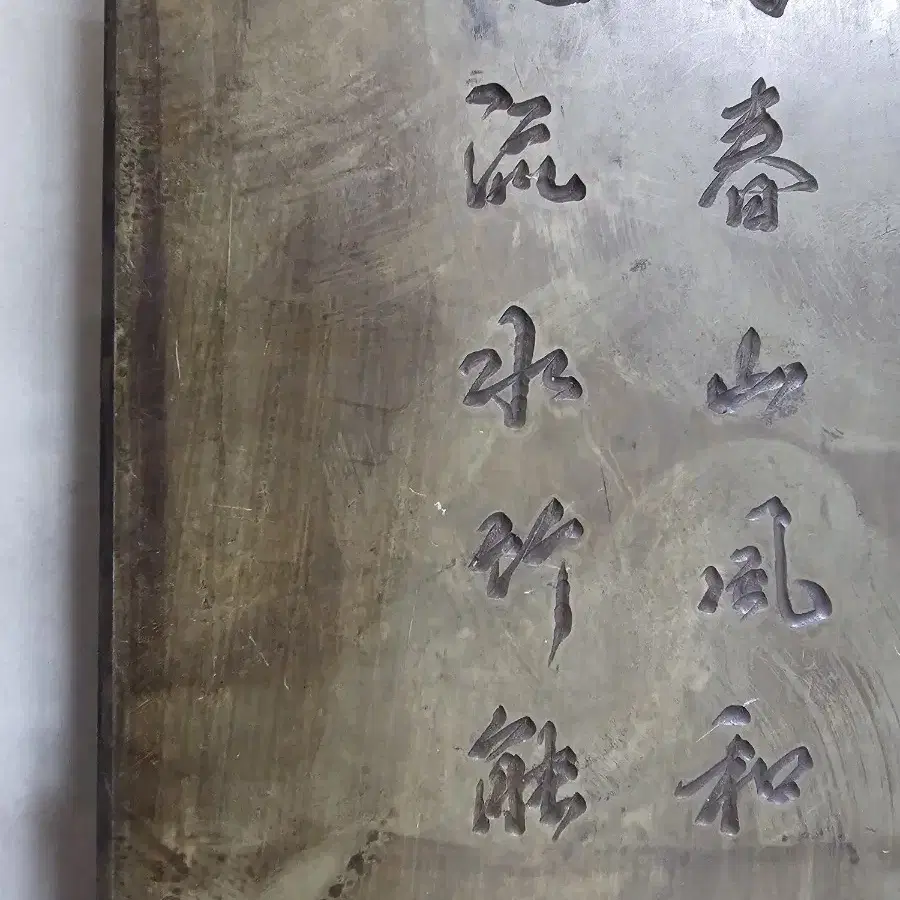 春山風和
流水竹能